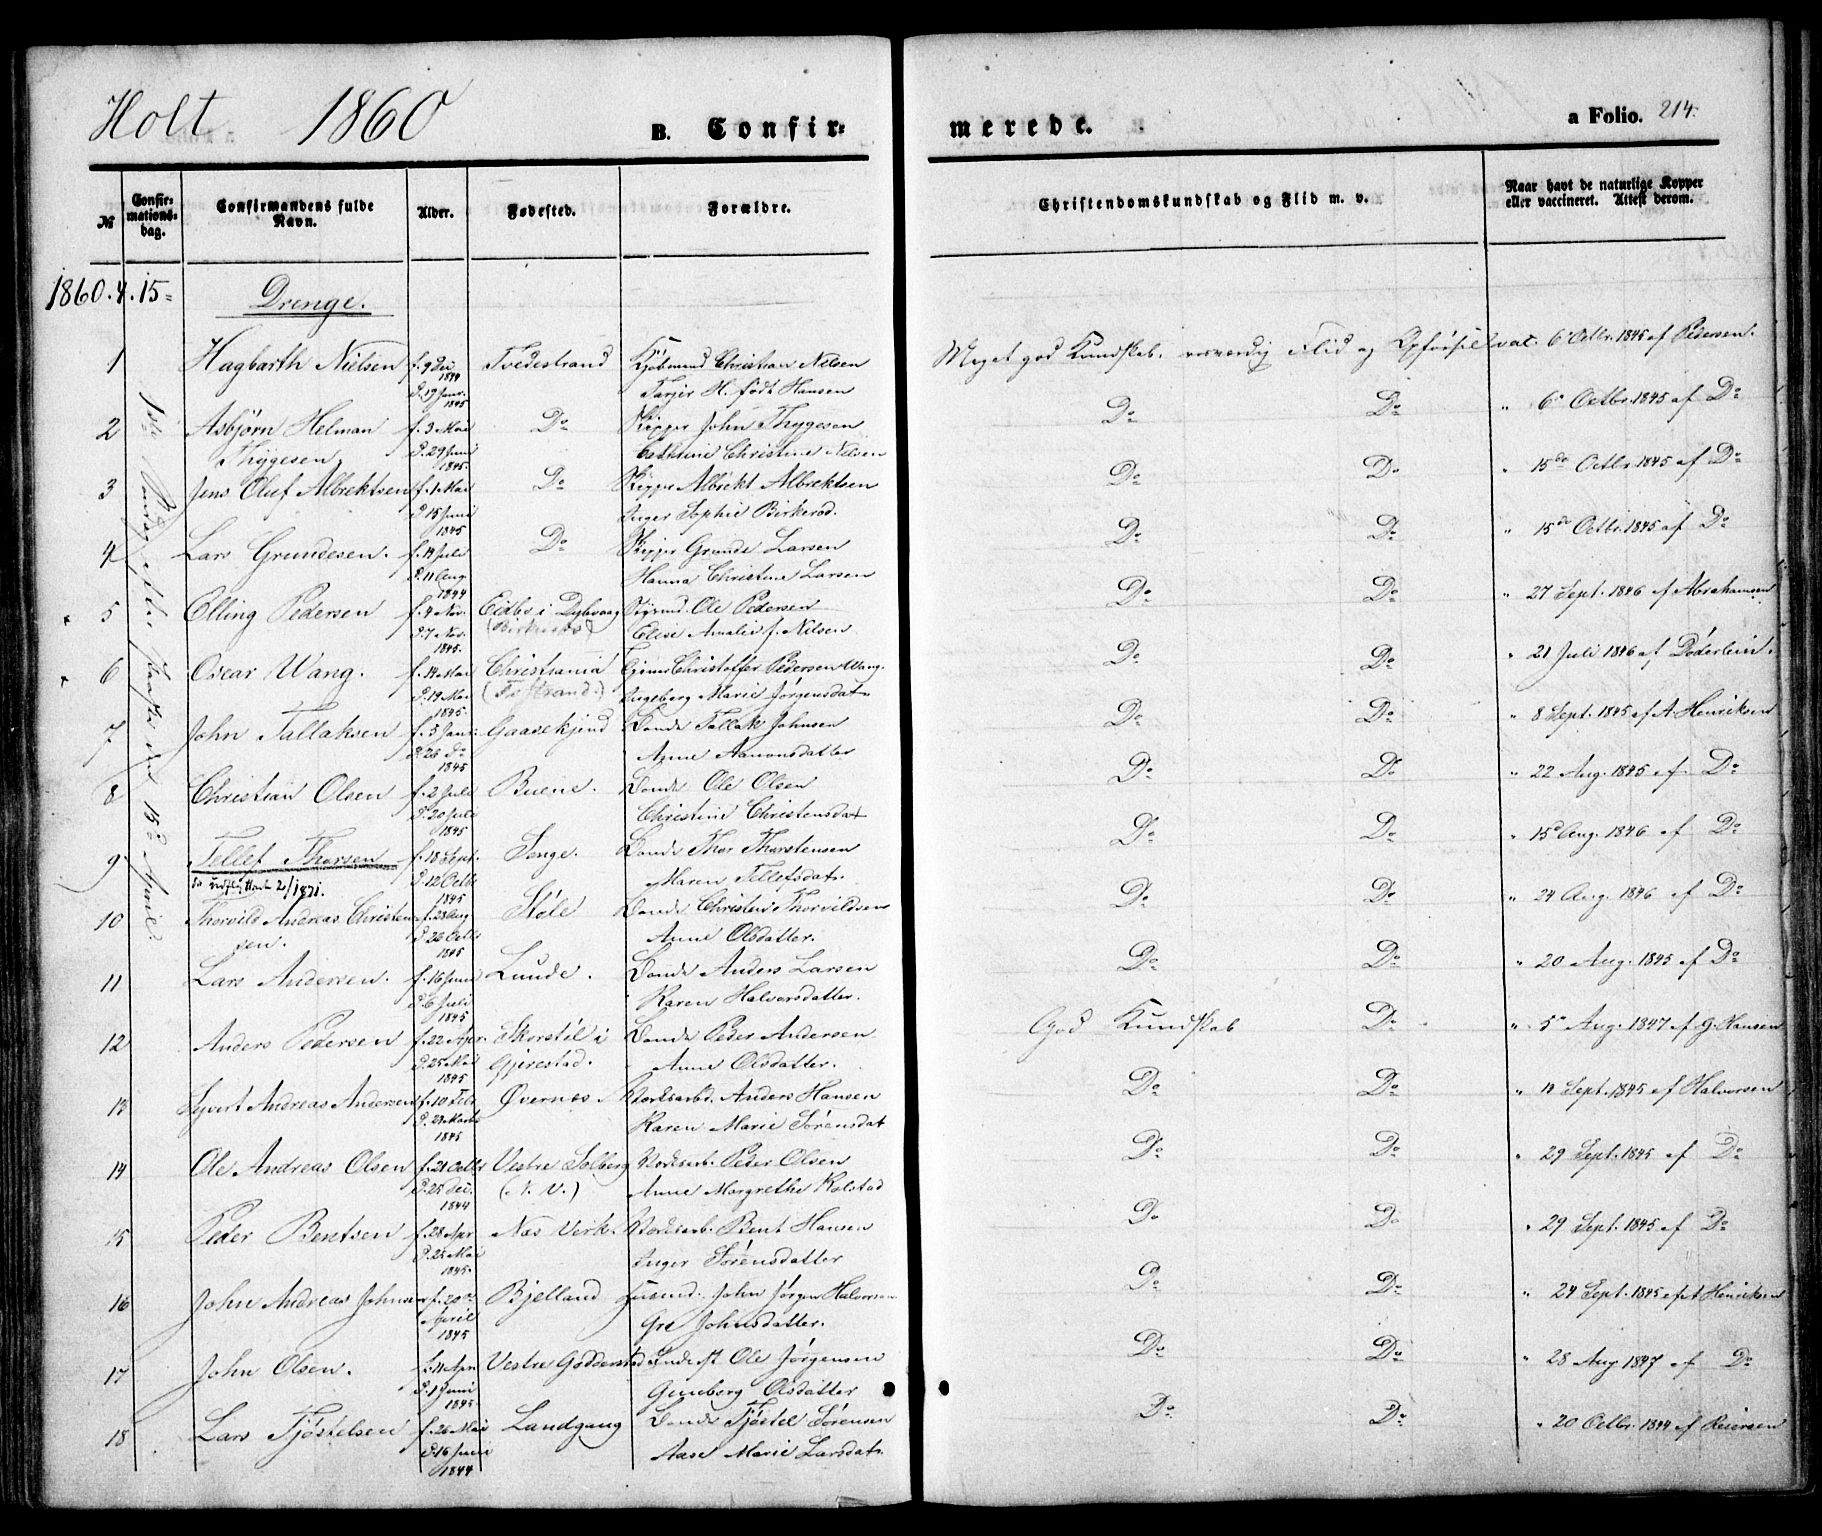 Holt 1860 B. Confir- merede. a Folio. 214.
№
Confir-
mations-
dag.
Confirmandens fulde
Navn.
Alder.
Fødested.
Forældre.
Christendomskundskab og Flid m. v.
Naar havt de naturlige Kopper
eller vaccineret. Attest derom.
1860. 4. 15-
Drenge.
1ste Søndag efter Paaske den 15d April.
1 Hagbarth Nielsen f. 9 Dec 1844 Tvedestrand Kjøbmand Christian Nilsen Meget god Kundskab. Flid og Opførsel vac. 6' Octbr. 1845 af Pedersen.
D. 19 Janr. 1845 H. født Hansen
2 Asbjörn Helman f. 3 Mai Do Skipper John Thygesen Do Do " 6' Octbr. 1845 af Do
Thygesen. D. 29 Juni 1845. Cathrine Christine Nilsen
3 Jens Oluf Albrektsen f. 1 Mai Do Skipper Albrekt Albrektsen Do Do " 15de Octbr 1845 af Do
D. 15 Juni 1845 Inger Sophie Birkerod.
4 Lars Grundesen. f. 14 Juli Do Skipper Grunde Larsen Do Do " 15de Octbr. 1845 af Do
D. 11 Aug. 1844 Hanna Christine Larsen
5 Elling Pedersen f. 4 Nov. Eidbo i Dybvaag Styrmd. Ole Pedersen Do Do " 27 Sept. 1846 af Abrahamsen
D. 7 Nov. 1845. Elise Amalie f. Nilsen
6 Oscar Wang. f. 14 Mai Christiania Christoffer Pedersen Wang. Do Do " 21 Juli 1846 af Döderlein.
D. 19 Mai 1845. Ingeborg Marie Jørgensdat
7 John Tallaksen f. 5 Janr. Gaasekjend Bonde Tallak Johnsen Do Do " 8 Sept. 1845 af A Henriksen
D. 26 Do 1845 Anne Aamonsdatter
8 Christian Olsen f. 2 Juli Buene. Bonde Ole Olsen Do Do " 22 Aug. 1845 af. Do
D. 20 Juli 1845 Christine Christensdat
9 Tellef Thorsen f. 18 Sept. Songe. Bonde Thor Thorstensen Do Do " 15d Aug. 1846 af Do
2/1871. D. 12 Octb. 1845 Maren Tellefsdat.
10 Thorvild Andreas Christen- f. 28 Aug Støle Bonde Christen Thorvildsen Do Do " 24 Aug. 1846 af Do
sen. D. 26 Octb 1845 Anne Olsdatter.
11 Lars Andersen. f. 16 Juni Lunde. Bonde Anders Larsen Do Do " 20 Aug. 1845 af Do
D. 6 Juli 1845 Karen Halvorsdatter.
12 Anders Pedersen f. 22 Apr. Skorstöl i Bonde Peder Andersen God Kundskab Do " 5' Aug. 1847 af G. Hansen
D. 25 Mai 1845 Gjerestad. Anne Olsdatter.
13 Syvert Andreas Andersen f. 10 Febr Øvernes Værksarbd. Anders Hansen Do Do " 11 Sept. 1845 af Halvorsen
D. 24 Marts 1845 Karen Marie Sørensdat
14 Ole Andreas Olsen f. 21 Octbr Vestre Solberg Værksarb. Peder Olsen Do Do " 29 Sept. 1845 af Do
D. 25 Dec. 1844 (N. V.) Anne Margrethe Kolstad
15 Peder Bentsen f. 28 Apr Næs Verk. Værksarb. Bent Hansen Do Do " 29 Sept. 1845 af Do
D. 25 Mai 1845. Inger Sørensdatter
16 John Andreas Johnsen f. 20de Bjelland Husmd. John Jørgen Halvorsen Do Do " 24 Sept. 1845 af A Henriksen
April 1845 Gro Johnsdatter.
17 John Olsen. f. 11 Apr. Vestre Godderstad Ole Jørgensen Do Do " 28 Aug 1847 af Do
D. 1 Juni 1845. Gunborg Olsdatter
18 Lars Tjøstelsen f. 26 Mai Landgang Bonde Tjøstel Sørensen Do Do " 20 Octbr. 1844 af Reiersen
D. 16 Juni 1844 Aase Marie Larsdat.